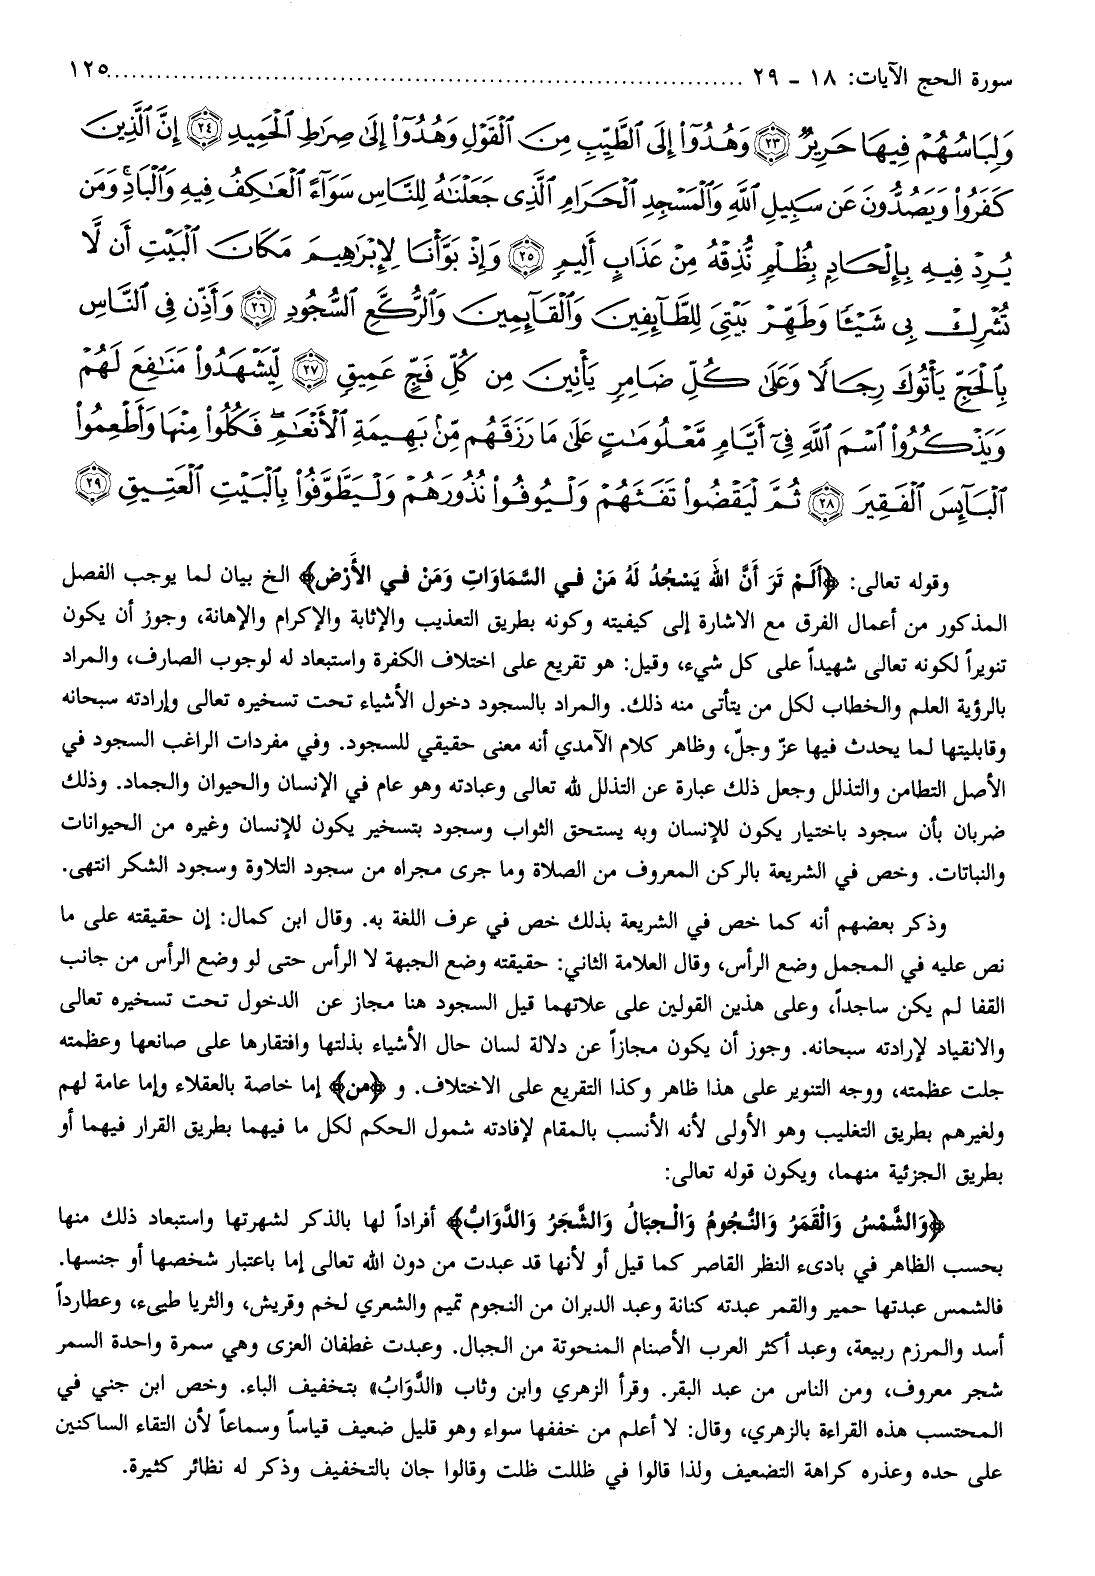 سورة الحج الآيات: ١٨ - ٢٩ ........................................................ ١٢٥
وَلِبَاسُهُمْ فِيهَا حَرِيرٌ ﴿٢٣﴾ وَهُدُوٓا۟ إِلَى ٱلطَّيِّبِ مِنَ ٱلْقَوْلِ وَهُدُوٓا۟ إِلَىٰ صِرَٰطِ ٱلْحَمِيدِ ﴿٢٤﴾ إِنَّ ٱلَّذِينَ
كَفَرُوا۟ وَيَصُدُّونَ عَن سَبِيلِ ٱللَّهِ وَٱلْمَسْجِدِ ٱلْحَرَامِ ٱلَّذِى جَعَلْنَٰهُ لِلنَّاسِ سَوَآءً ٱلْعَٰكِفُ فِيهِ وَٱلْبَادِ ۚ وَمَن
يُرِدْ فِيهِ بِإِلْحَادٍۭ بِظُلْمٍ نُّذِقْهُ مِنْ عَذَابٍ أَلِيمٍ ﴿٢٥﴾ وَإِذْ بَوَّأْنَا لِإِبْرَٰهِيمَ مَكَانَ ٱلْبَيْتِ أَن لَّا
تُشْرِكْ بِى شَيْـًٔا وَطَهِّرْ بَيْتِىَ لِلطَّآئِفِينَ وَٱلْقَآئِمِينَ وَٱلرُّكَّعِ ٱلسُّجُودِ ﴿٢٦﴾ وَأَذِّن فِى ٱلنَّاسِ
بِٱلْحَجِّ يَأْتُوكَ رِجَالًا وَعَلَىٰ كُلِّ ضَامِرٍ يَأْتِينَ مِن كُلِّ فَجٍّ عَمِيقٍ ﴿٢٧﴾ لِّيَشْهَدُوا۟ مَنَٰفِعَ لَهُمْ
وَيَذْكُرُوا۟ ٱسْمَ ٱللَّهِ فِىٓ أَيَّامٍ مَّعْلُومَٰتٍ عَلَىٰ مَا رَزَقَهُم مِّنۢ بَهِيمَةِ ٱلْأَنْعَٰمِ ۖ فَكُلُوا۟ مِنْهَا وَأَطْعِمُوا۟
ٱلْبَآئِسَ ٱلْفَقِيرَ ﴿٢٨﴾ ثُمَّ لْيَقْضُوا۟ تَفَثَهُمْ وَلْيُوفُوا۟ نُذُورَهُمْ وَلْيَطَّوَّفُوا۟ بِٱلْبَيْتِ ٱلْعَتِيقِ ﴿٢٩﴾
وقوله تعالى: ﴿أَلَمْ تَرَ أَنَّ اللهَ يَسْجُدُ لَهُ مَنْ في السَّمَاوَاتِ وَمَنْ في الأَرْض﴾ الخ بيان لما يوجب الفصل
المذكور من أعمال الفرق مع الاشارة إلى كيفيته وكونه بطريق التعذيب والإثابة والإكرام والإهانة، وجوز أن يكون
تنويراً لكونه تعالى شهيداً على كل شيء، وقيل: هو تقريع على اختلاف الكفرة واستبعاد له لوجوب الصارف، والمراد
بالرؤية العلم والخطاب لكل من يتأتى منه ذلك. والمراد بالسجود دخول الأشياء تحت تسخيره تعالى وإرادته سبحانه
وقابليتها لما يحدث فيها عزّ وجلّ، وظاهر كلام الآمدي أنه معنى حقيقي للسجود. وفي مفردات الراغب السجود في
الأصل التطامن والتذلل وجعل ذلك عبارة عن التذلل لله تعالى وعبادته وهو عام في الإنسان والحيوان والجماد. وذلك
ضربان بأن سجود باختيار يكون للإنسان وبه يستحق الثواب وسجود بتسخير يكون للإنسان وغيره من الحيوانات
والنباتات. وخص في الشريعة بالركن المعروف من الصلاة وما جرى مجراه من سجود التلاوة وسجود الشكر انتهى.
وذكر بعضهم أنه كما خص في الشريعة بذلك خص في عرف اللغة به. وقال ابن كمال: إن حقيقته على ما
نص عليه في المجمل وضع الرأس، وقال العلامة الثاني: حقيقته وضع الجبهة لا الرأس حتى لو وضع الرأس من جانب
القفا لم يكن ساجداً، وعلى هذين القولين على علاتهما قيل السجود هنا مجاز عن الدخول تحت تسخيره تعالى
والانقياد لإرادته سبحانه. وجوز أن يكون مجازاً عن دلالة لسان حال الأشياء بذلتها وافتقارها على صانعها وعظمته
جلت عظمته، ووجه التنوير على هذا ظاهر وكذا التقريع على الاختلاف. و ﴿من﴾ إما خاصة بالعقلاء وإما عامة لهم
ولغيرهم بطريق التغليب وهو الأولى لأنه الأنسب بالمقام لإفادته شمول الحكم لكل ما فيهما بطريق القرار فيهما أو
بطريق الجزئية منهما، ويكون قوله تعالى:
﴿وَالشَّمْسُ وَالْقَمَرُ وَالنُّجُومُ وَالْجِبَالُ وَالشَّجَرُ وَالدَّوَابُّ﴾ أفراداً لها بالذكر لشهرتها واستبعاد ذلك منها
بحسب الظاهر في بادىء النظر القاصر كما قيل أو لأنها قد عبدت من دون الله تعالى إما باعتبار شخصها أو جنسها.
فالشمس عبدتها حمير والقمر عبدته كنانة وعبد الدبران من النجوم تميم والشعري لخم وقريش، والثريا طيىء، وعطارداً
أسد والمرزم ربيعة، وعبد أكثر العرب الأصنام المنحوتة من الجبال. وعبدت غطفان العزى وهي سمرة واحدة السمر
شجر معروف، ومن الناس من عبد البقر. وقرأ الزهري وابن وثاب «الدَّوَابُ» بتخفيف الباء. وخص ابن جني في
المحتسب هذه القراءة بالزهري، وقال: لا أعلم من خففها سواء وهو قليل ضعيف قياساً وسماعاً لأن التقاء الساكنين
على حده وعذره كراهة التضعيف ولذا قالوا في ظللت ظلت وقالوا جان بالتخفيف وذكر له نظائر كثيرة.